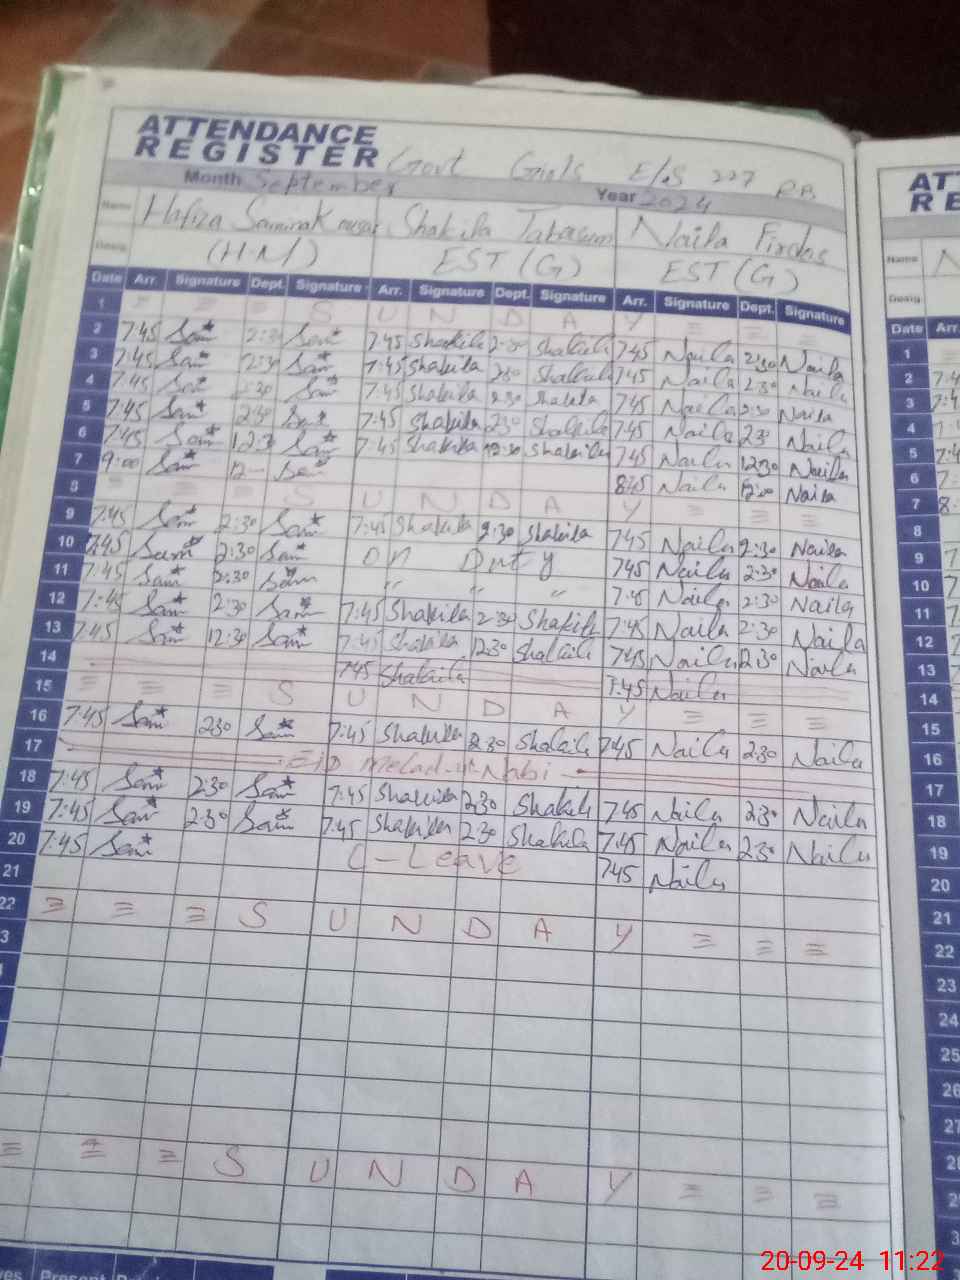 ATTENDANCE
REGISTER Govt Girls E/S 227 R.B.
Month September Year 2024
Name Hafiza Shakila Tabasum Naila
Desig. (H.M) EST (G) EST (G)
Date Arr. Signature Dept. Signature Arr. Signature Dept. Signature Arr. Signature Dept. Signature
1 S U N D A Y
2 7:45 Sam 2:30 Sam 7:45 Shakila 2:30 Shakila 7:45 Naila 2:30 Naila
3 7:45 Sam 2:30 Sam 7:45 Shakila 2:30 Shakila 7:45 Naila 2:30 Naila
4 7:45 Sam 2:30 Sam 7:45 Shakila 2:30 Shakila 7:45 Naila 2:30 Naila
5 7:45 Sam 2:30 Sam 7:45 Shakila 2:30 Shakila 7:45 Naila 2:30 Naila
6 7:45 Sam 12:30 Sam 7:45 Shakila 12:30 Shakila 7:45 Naila 12:30 Naila
7 9:00 Sam 12 Sam 8:45 Naila Naila
8 S U N D A Y
9 7:45 Sam 2:30 Sam 7:45 Shakila 2:30 Shakila 7:45 Naila 2:30 Naila
10 7:45 Sam 2:30 Sam On Duty 7:45 Naila 2:30 Naila
11 7:45 Sam 2:30 Sam " " " 7:45 Naila 2:30 Naila
12 7:45 Sam 2:30 Sam 7:45 Shakila 2:30 Shakila 7:45 Naila 2:30 Naila
13 7:45 Sam 12:30 Sam 7:45 Shakila 12:30 Shakila 7:45 Naila 12:30 Naila
14 7:45 Shakila 7:45 Naila
15 S U N D A Y
16 7:45 Sam 2:30 Sam 7:45 Shakila 2:30 Shakila 7:45 Naila 2:30 Naila
17 Eid Melad-un-Nabi
18 7:45 Sam 2:30 Sam 7:45 Shakila 2:30 Shakila 7:45 Naila 2:30 Naila
19 7:45 Sam 2:30 Sam 7:45 Shakila 2:30 Shakila 7:45 Naila 2:30 Naila
20 7:45 Sam C-Leave 7:45 Naila
21
22 S U N D A Y
S U N D A Y
Present
Name
Desig.
Date Arr.
1
2
3
4
5
6
7
8
9
10
11
12
13
14
15
16
17
18
19
20
21
22
23
24
25
26
27
20-09-24 11:22